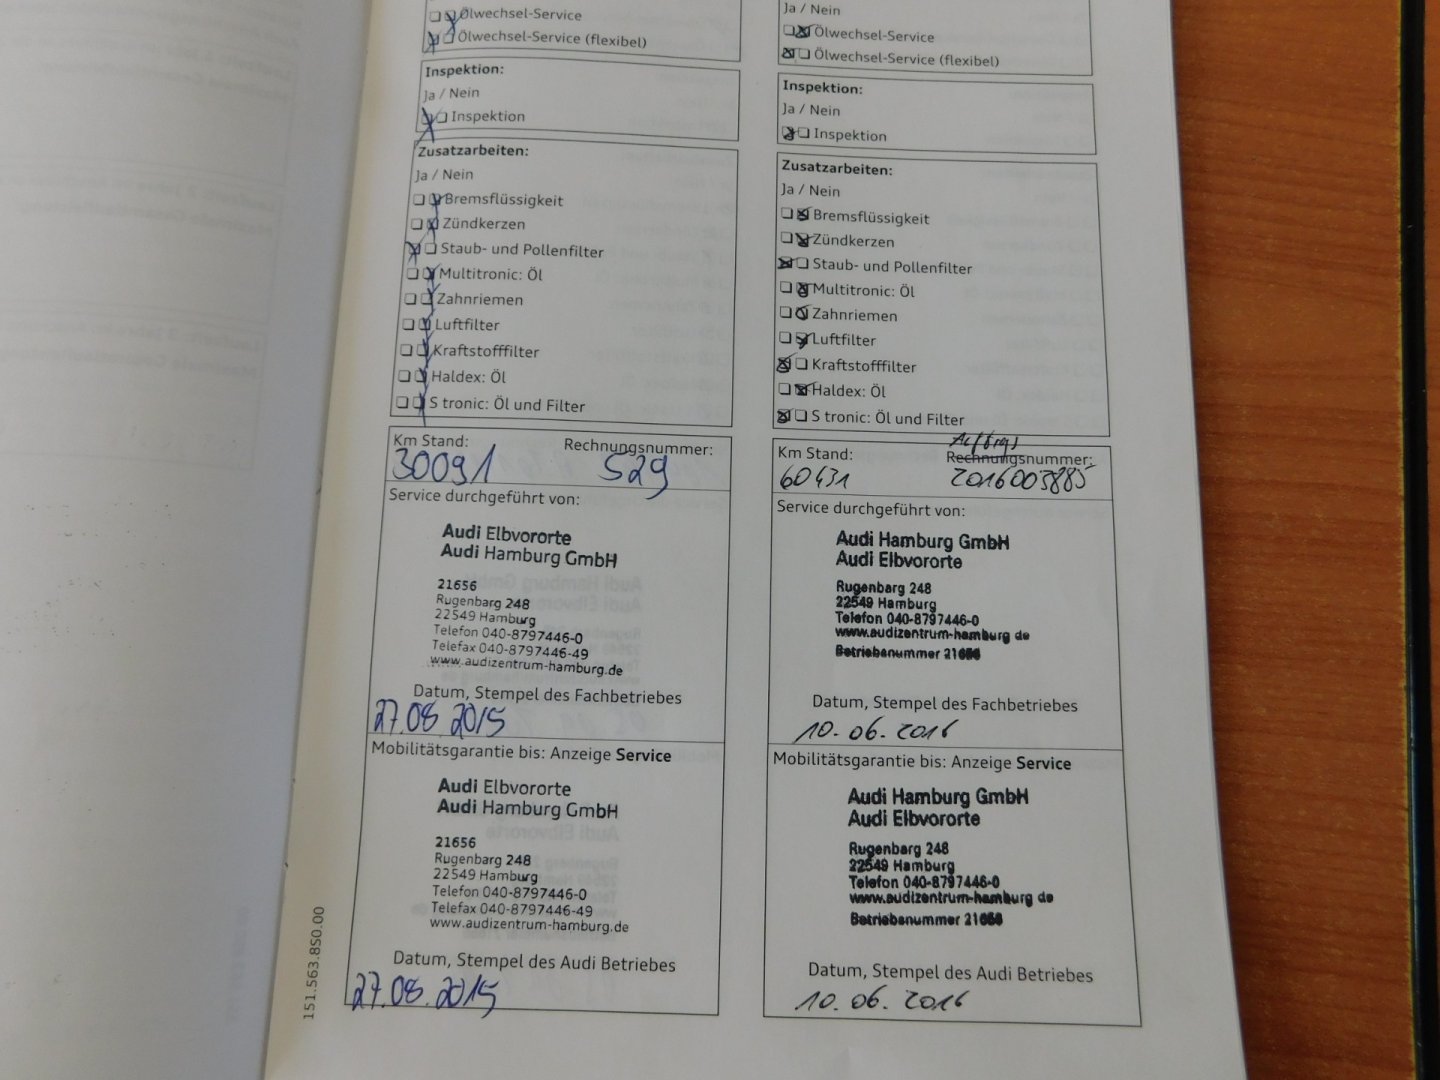 Ölwechsel-Service
Ölwechsel-Service (flexibel)
Inspektion:
Ja / Nein
Inspektion
Zusatzarbeiten:
Ja / Nein
Bremsflüssigkeit
Zündkerzen
Staub- und Pollenfilter
Multitronic: Öl
Zahnriemen
Luftfilter
Kraftstofffilter
Haldex: Öl
S tronic: Öl und Filter
Km Stand: Rechnungsnummer:
30091 529
Service durchgeführt von:
Audi Elbvororte
Audi Hamburg GmbH
21656
Rugenbarg 248
22549 Hamburg
Telefon 040-8797446-0
Telefax 040-8797446-49
www.audizentrum-hamburg.de
Datum, Stempel des Fachbetriebes
27.08.2015
Mobilitätsgarantie bis: Anzeige Service
Audi Elbvororte
Audi Hamburg GmbH
21656
Rugenbarg 248
22549 Hamburg
Telefon 040-8797446-0
Telefax 040-8797446-49
www.audizentrum-hamburg.de
Datum, Stempel des Audi Betriebes
27.08.2015
151.563.8S0.00
Ja / Nein
Ölwechsel-Service
Ölwechsel-Service (flexibel)
Inspektion:
Ja / Nein
Inspektion
Zusatzarbeiten:
Ja / Nein
Bremsflüssigkeit
Zündkerzen
Staub- und Pollenfilter
Multitronic: Öl
Zahnriemen
Luftfilter
Kraftstofffilter
Haldex: Öl
S tronic: Öl und Filter
Km Stand: Rechnungsnummer:
60431 2016003885
Service durchgeführt von:
Audi Hamburg GmbH
Audi Elbvororte
Rugenbarg 248
22549 Hamburg
Telefon 040-8797446-0
www.audizentrum-hamburg de
Betriebsnummer 21656
Datum, Stempel des Fachbetriebes
10.06.2016
Mobilitätsgarantie bis: Anzeige Service
Audi Hamburg GmbH
Audi Elbvororte
Rugenbarg 248
22549 Hamburg
Telefon 040-8797446-0
www.audizentrum-hamburg de
Betriebsnummer 21656
Datum, Stempel des Audi Betriebes
10.06.2016